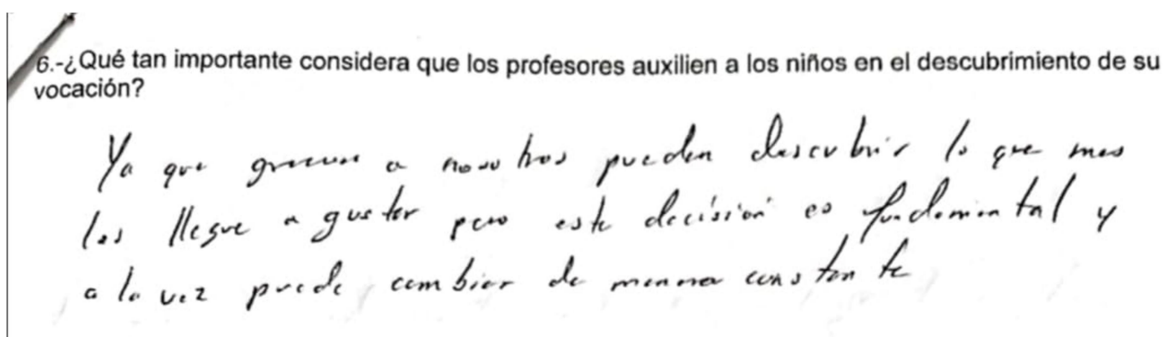 6.-¿Qué tan importante considera que los profesores auxilien a los niños en el descubrimiento de su
vocación?
Ya que gracias a nosotros pueden descubrir lo que mas
les llegue a gustar pero este decisión es fundamental y
a la vez puede cambiar de manera constante